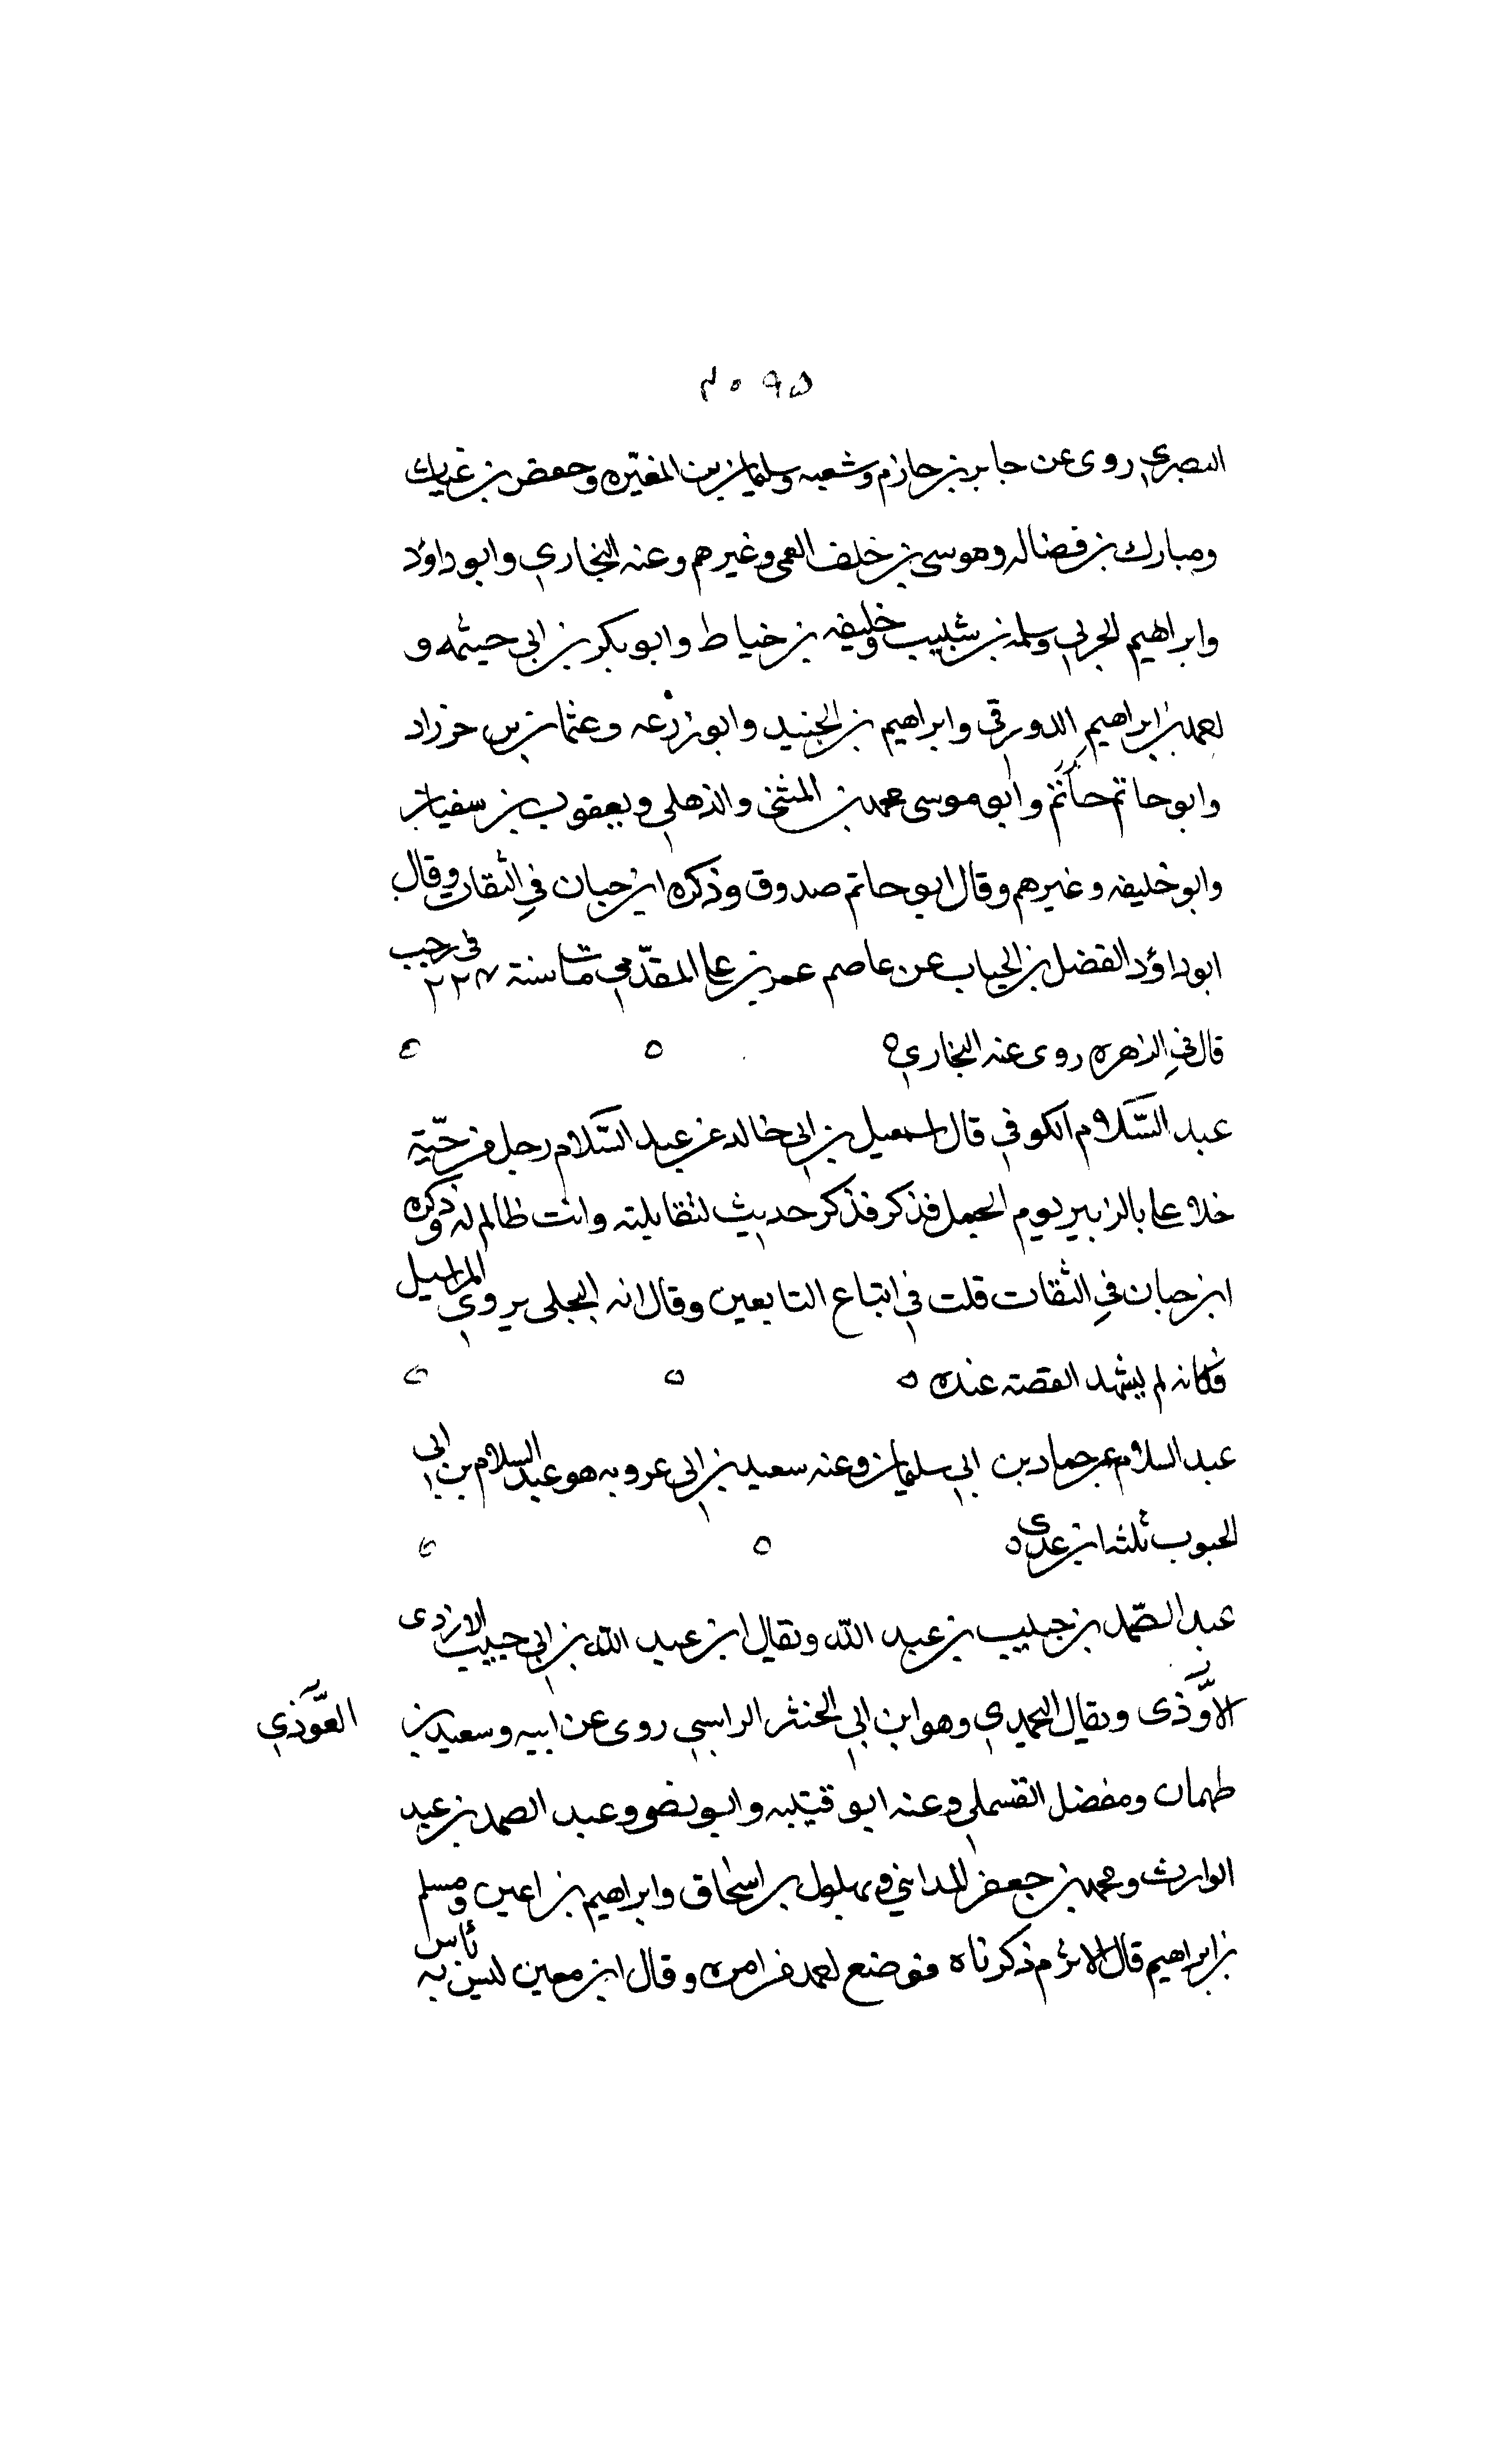 ٢٠٩٥
البصري روى عن جابر بن حازم وشعبه وسليمان بن المغيره وحفص بن غياث
ومبارك بن فضاله وموسى بن خلف العمى وغيرهم وعنه البخاري وابو داود
وابراهيم الحربي وسلمه بن شبيب وخليفه بن خياط وابو بكر بن ابي خيثمه و
احمد بن ابراهيم الدورقي وابراهيم بن الجنيد وابو زرعه وعثمان بن خرزاد
وابو حاتم حاتم وابو موسى محمد بن المثنى والذهلي ويعقوب بن سفيان
وابو خليفه وغيرهم وقال ابو حاتم صدوق وذكره ابن حبان في الثقات وقال
ابو داؤد الفضل بن الحباب عن عاصم عمر بن علي المقدّمي مات سنة ٢٢٨ في رجب
قال في الزهره روى عنه البخاري ه
عبد السّلام الكوفي قال اسمعيل بن ابي خالد عن عبد السّلام رجل من حيّة
خلا علي بالزبير يوم الجمل فذكر فذكر حديث لتقاتلنه وانت ظالم له وذكره
ابن حبان في الثقات قلت في اتباع التابعين وقال انه البجلي يروي المراسيل
فكانه لم يشهد القصة عنده ه
عبد السلام عن حماد بن ابي سليمان وعنه سعيد بن ابي عروبه هو عبد السلام بن ابي
الجنوب ثلثه ابن عدى ه
عبد الصّمد بن حبيب بن عبد الله ويقال ابن عبد الله بن ابي حبيب الازدى
الاوّذى ويقال اليحمدي وهو ابن ابي الجنثر الراسبي روى عن ابيه وسعيد بن
العوّذي
طهمان ومفضل القسملي وعنه ابو قتيبه وابو نضر وعبد الصمد بن عبد
الوارث ومحمد بن جعفر المدايني وبهلول بن اسحاق وابراهيم بن اعين ومسلم
بن ابراهيم قال الاثرم ذكرناه فوضع احمد من امره وقال ابن معين ليس به بأس